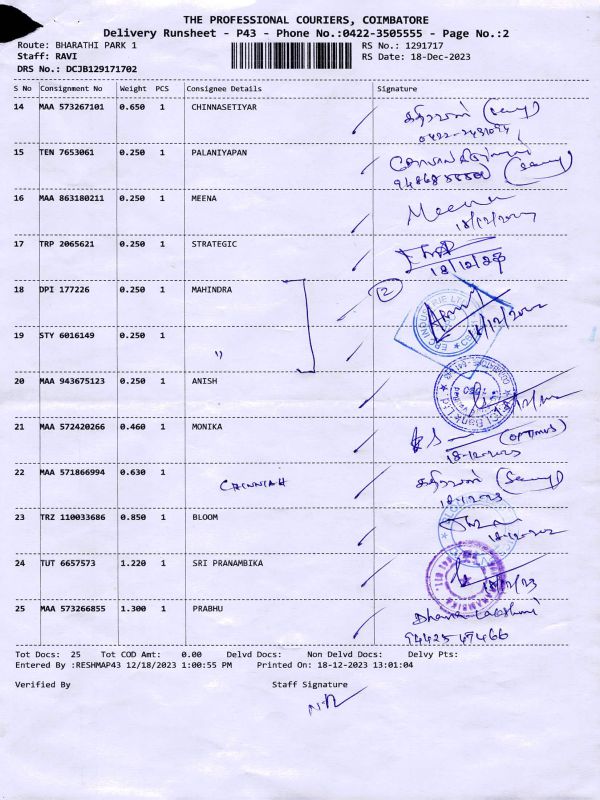 THE PROFESSIONAL COURIERS, COIMBATORE
Delivery Runsheet - P43 - Phone No.:0422-3505555 - Page No.:2
Route: BHARATHI PARK 1 RS No.: 1291717
Staff: RAVI RS Date: 18-Dec-2023
DRS No.: DCJB129171702
S No Consignment No Weight PCS Consignee Details Signature
14 MAA 573267101 0.650 1 CHINNASETIYAR
15 TEN 7653061 0.250 1 PALANIYAPAN
16 MAA 863180211 0.250 1 MEENA Meena
17 TRP 2065621 0.250 1 STRATEGIC
18/12/23
18 DPI 177226 0.250 1 MAHINDRA 2
19 STY 6016149 0.250 1 "
20 MAA 943675123 0.250 1 ANISH
21 MAA 572420266 0.460 1 MONIKA (OPTIMUS)
18-12-2023
22 MAA 571866994 0.630 1 CHINNIAH
23 TRZ 110033686 0.850 1 BLOOM
24 TUT 6657573 1.220 1 SRI PRANAMBIKA
18/12/23
25 MAA 573266855 1.300 1 PRABHU Dhanalakshmi
Tot Docs: 25 Tot COD Amt: 0.00 Delvd Docs: Non Delvd Docs: Delvy Pts:
Entered By :RESHMAP43 12/18/2023 1:00:55 PM Printed On: 18-12-2023 13:01:04
Verified By Staff Signature